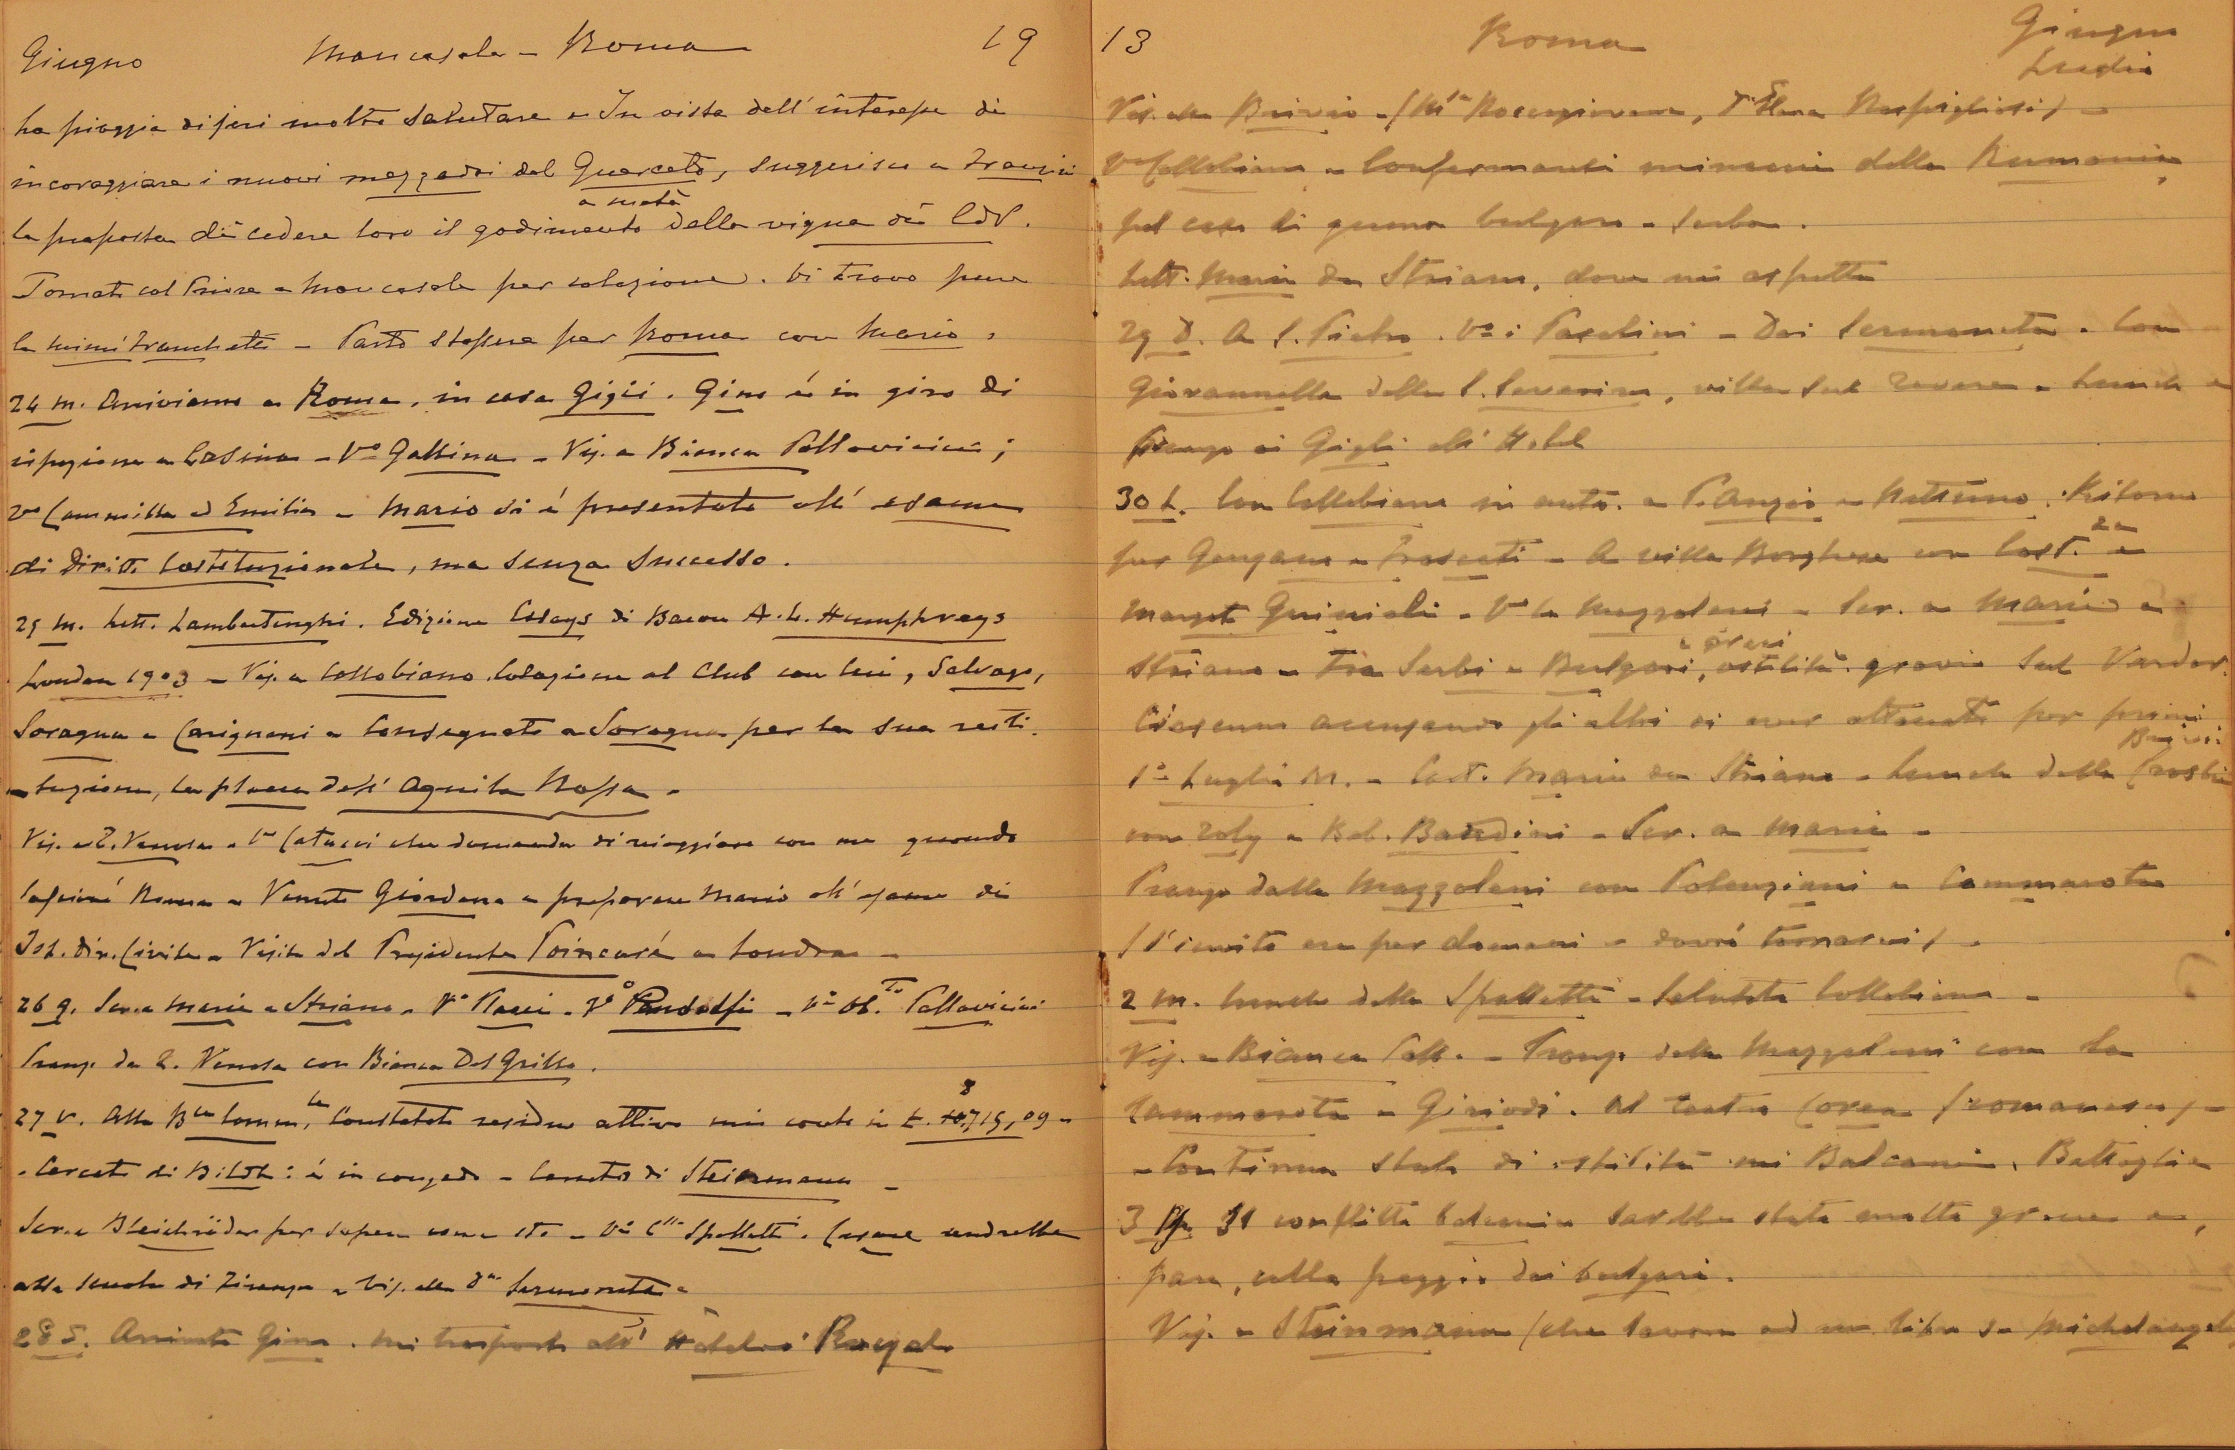 Giugno Moncasale - Roma 19
La pioggia di jeri molto salutare - In vista dell'interesse di
incoraggiare i nuovi mezzadri del Querceto, suggerisco a Franzini
la proposta di cedere loro a metà il godimento della vigna di CdV.
Tornati col Priore a Moncasale per colazione. Vi trovo pure
la Mimì Franchetti - Parto stassera per Roma con Mario.
24 m. Arriviamo a Roma, in casa Gigli. Gino è in giro di
ispezione a Cassino - Vo Gallina - Vis. a Bianca Pallavicini;
Vo Cammilla ed Emilia - Mario si è presentato all'esame
di Diritto Costituzionale, ma senza successo.
25 m. Lett. Lambertenghi. Edizione Essays di Bacon A. L. Humphreys
London 1903 - Vis. a Collobiano. Colazione al Club con lui, Salvago,
Soragna e Carignani - Consegnato a Soragna per la sua resti-
-tuzione, la placca dell'Aquila Rossa.
Vis. a T. Venosa - Vo Catucci che domanda di viaggiare con me quando
lascierò Roma - Venuto Giordana a preparare Mario all'esame di
Ist. Dir. Civile - Visita del Presidente Poincaré a Londra -
26 g. Scr. a Maria a Striano - Vo Pasolini
Pranzo da T. Venosa con Bianca Del Grillo.
27 v. Alla Bca Comm.le Constatato residuo attivo mio conto in £. 8715,09 -
- Cercato di Bildt: è in congedo - Cercato di Steinmann -
Scr. a Bleichröder per sapere come sto - Vo Ctssa Spalletti. Cesare andrebbe
alla scuola di Firenze - Vis. alla Dssa Sermoneta -
28 S. Arrivato Gino. Mi trasporto all'Hotel Royal
13 Roma Giugno
Luglio
Vis. alla Brivio - (Mssa Roccagiovane, Da Elena Rospigliosi) -
Vo Collobiano - Confermansi minaccie della Rumania,
pel caso di guerra bulgaro-serba.
Lett. Maria da Striano, dove mi aspetta
29 D. A S. Pietro. Vo i Pasolini - Dai Sermoneta. Con
Giovannella dalla S. Severina, villa sul Tevere - Lunch -
Pranzo ai Gigli all'Hotel
30 L. Con Collobiano in auto. a P. Anzio - Nettuno. Ritorno
per Genzano - Frascati - A villa Borghese con Cost.za e
Margt Guiccioli - Vo la Mazzoleni - Scr. a Maria a
Striano - Tra Serbi e Bulgari, e greci ostilità gravi sul Vardar.
Ciascuno accusando gli altri di aver attaccato per primi
1o Luglio M. - Cart. Maria da Striano - Lunch dalla Brivio Crosbie
con Toly e Bandini - Scr. a Maria -
Pranzo dalla Mazzoleni con Potenziani e Cammarota
(l'invito era per domani - dovrò tornarvi) -
2 m. Lunch dalla Spalletti - Salutato Collobiano -
Vis. a Bianca Pall. - Pranzo dalla Mazzoleni con la
Cammarota e Giriodi. Al teatro Corea (romanesco) -
- Continua stato di ostilità nei Balcani. Battaglia
3 g. Il conflitto sarebbe stato molto grave e,
pare, colla peggio dei bulgari.
Vis. a Steinmann (che lavora ad un libro su Michelangelo